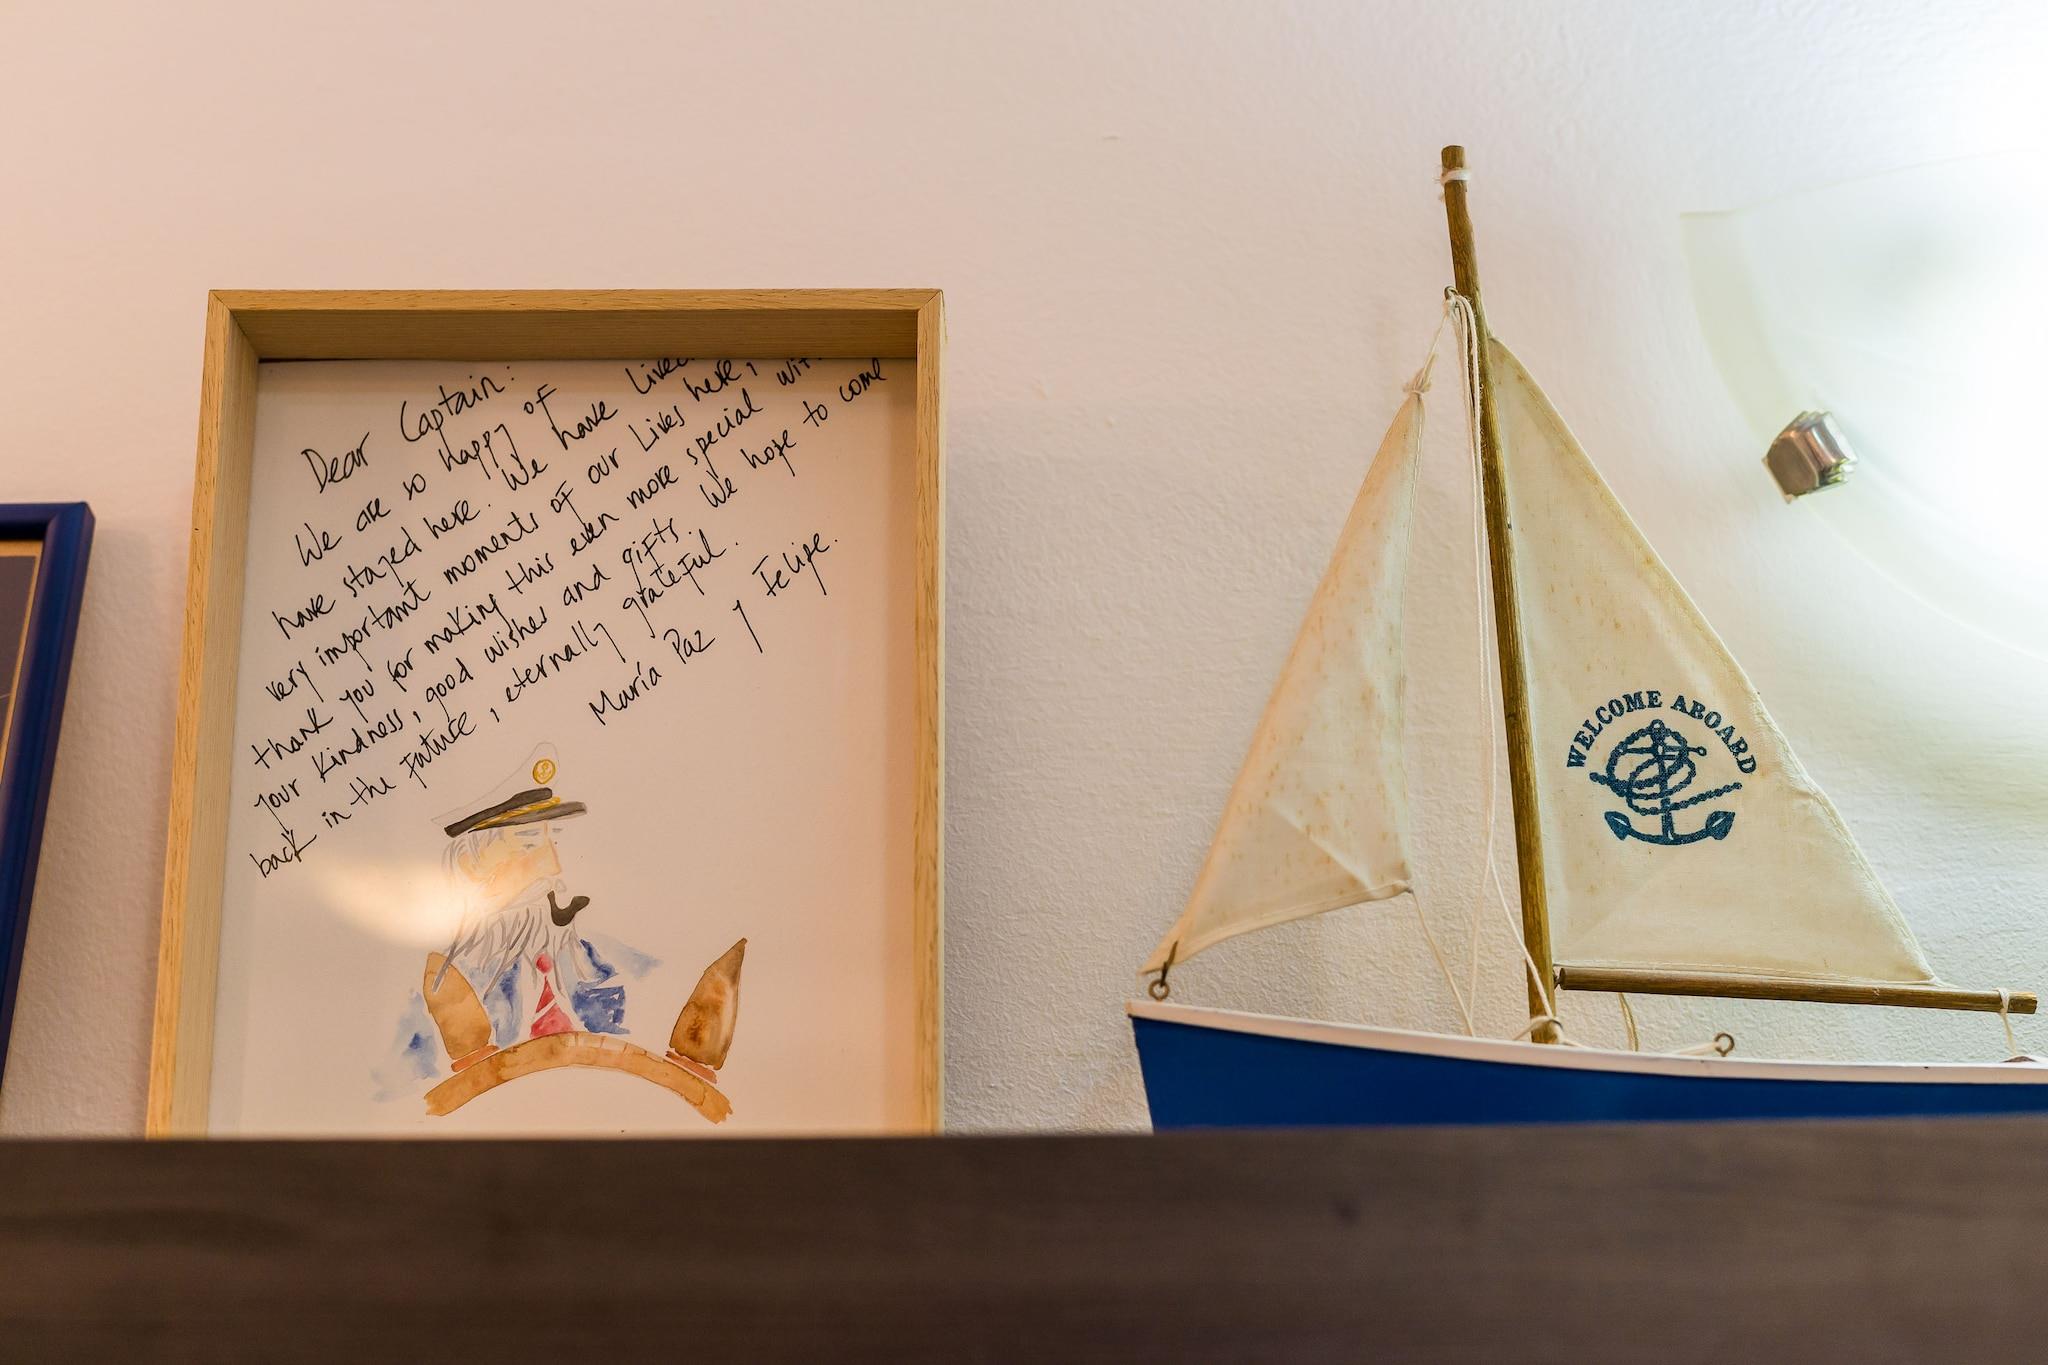 Dear Captain:
We are so happy of
have stayed here. We have Lived
very important moments of our Lives here,
thank you for making this even more special with
your Kindness, good wishes and gifts. We hope to come
back in the Future, eternally grateful.
María Paz y Felipe.
WELCOME ABOARD